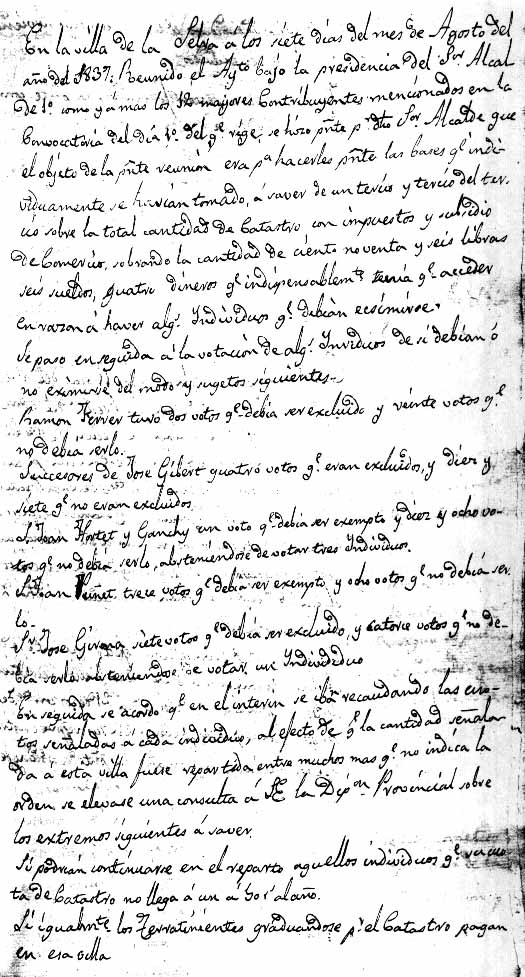 En la villa de la Selva a los siete dias del mes de Agosto del
año del 1837. Reunido el Ayto bajo la presidencia del Sor Alcal
de 1o. como y á mas los 12 majores Contribuyentes mencionados en la
Convocatoria del dia 1o. del qe rige, se hizo pnte pr dho Sor Alcalde que
el objeto de la pnte reunion era pa hacerles pnte las bases qe indi-
viduamente se havian tomado, á saver de un tercio y tercio del ter-
cio sobre la total cantidad de Catastro con impuestos y subsidio
de Comercio, sobrando la cantidad de ciento noventa y seis libras
seis sueldos, quatro dineros qe indispensablemte tenia qe acceder
en razon á haver algs. Individuos qe debian ecsimirse.
Se paso en seguida á la votacion de algs. Invidios de si debian ó
no eximirse del modo y sugetos siguientes.
Ramon Ferrer tuvo dos votos qe debia ser excluido y veinte votos qe
no debia serlo.
Successores de Jose Gibert quatro votos qe eran excluidos, y diez y
siete qe no eran excluidos.
S. Joan Fortet y Ganchy un voto qe debia ser exempto y diez y ocho vo-
tos qe no debia serlo, absteniendose de votar tres Individuos.
S. Joan Puñet trece votos qe debia ser exempto y ocho votos qe no debia ser
lo.
Sr. Jose Girona siete votos qe debia ser excluido, y catorce votos qe no de-
bia serlo absteniendose de votar un Individuo
En seguida se acordo qe en el interin se iba recaudando las cuo-
tas señaladas á cada individuo, al efecto de qe la cantidad señala-
da a esta villa fuese repartida entre muchos mas qe no indica la
orden se elevase una consulta á SE la Dipon Provincial sobre
los extremos siguientes á saver.
Si podrian continuarse en el reparto aquellos individuos qe su cuo
ta de Catastro no llega á un á 30 rs al año.
Si igualmte los Terratinientes graduandose pr el Catastro pagan
en esa villa